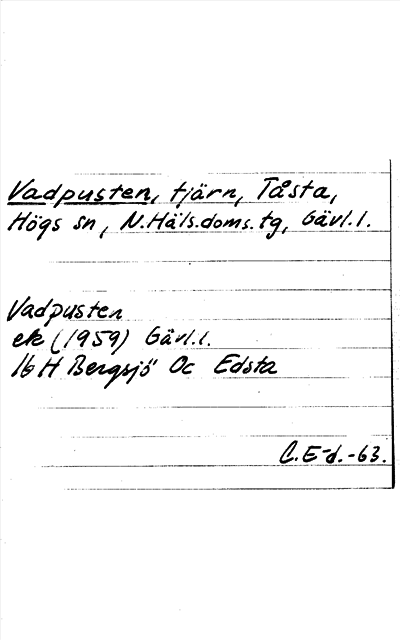 Vadpusten, tjärn, Tåsta,
Högs sn, N.Häls.doms.tg, Gävl.l.
Vadpusten
ek (1959) Gävl.l.
16 H Bergsjö Oc Edsta
C.E-d.-63.